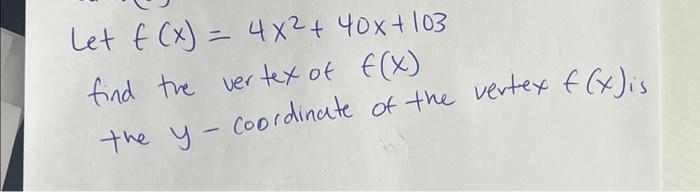 Let f(x) = 4x²+ 40x+103
find the vertex of f(x)
the y - coordinate of the vertex f(x) is